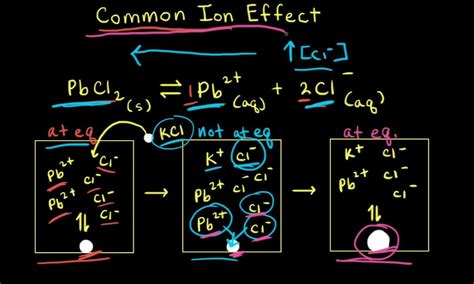 Common Ion Effect
↑[Cl⁻]
PbCl₂(s) ⇌ 1Pb²⁺(aq) + 2Cl⁻(aq)
at eq. KCl not at eq at eq.
Pb²⁺ Cl⁻
Pb²⁺ Cl⁻
Cl⁻
Cl⁻
⇅
→
K⁺ Cl⁻
Pb²⁺ Cl⁻ Cl⁻
Pb²⁺ Cl⁻
Cl⁻
→
K⁺ Cl⁻
Pb²⁺ Cl⁻
Cl⁻
⇅